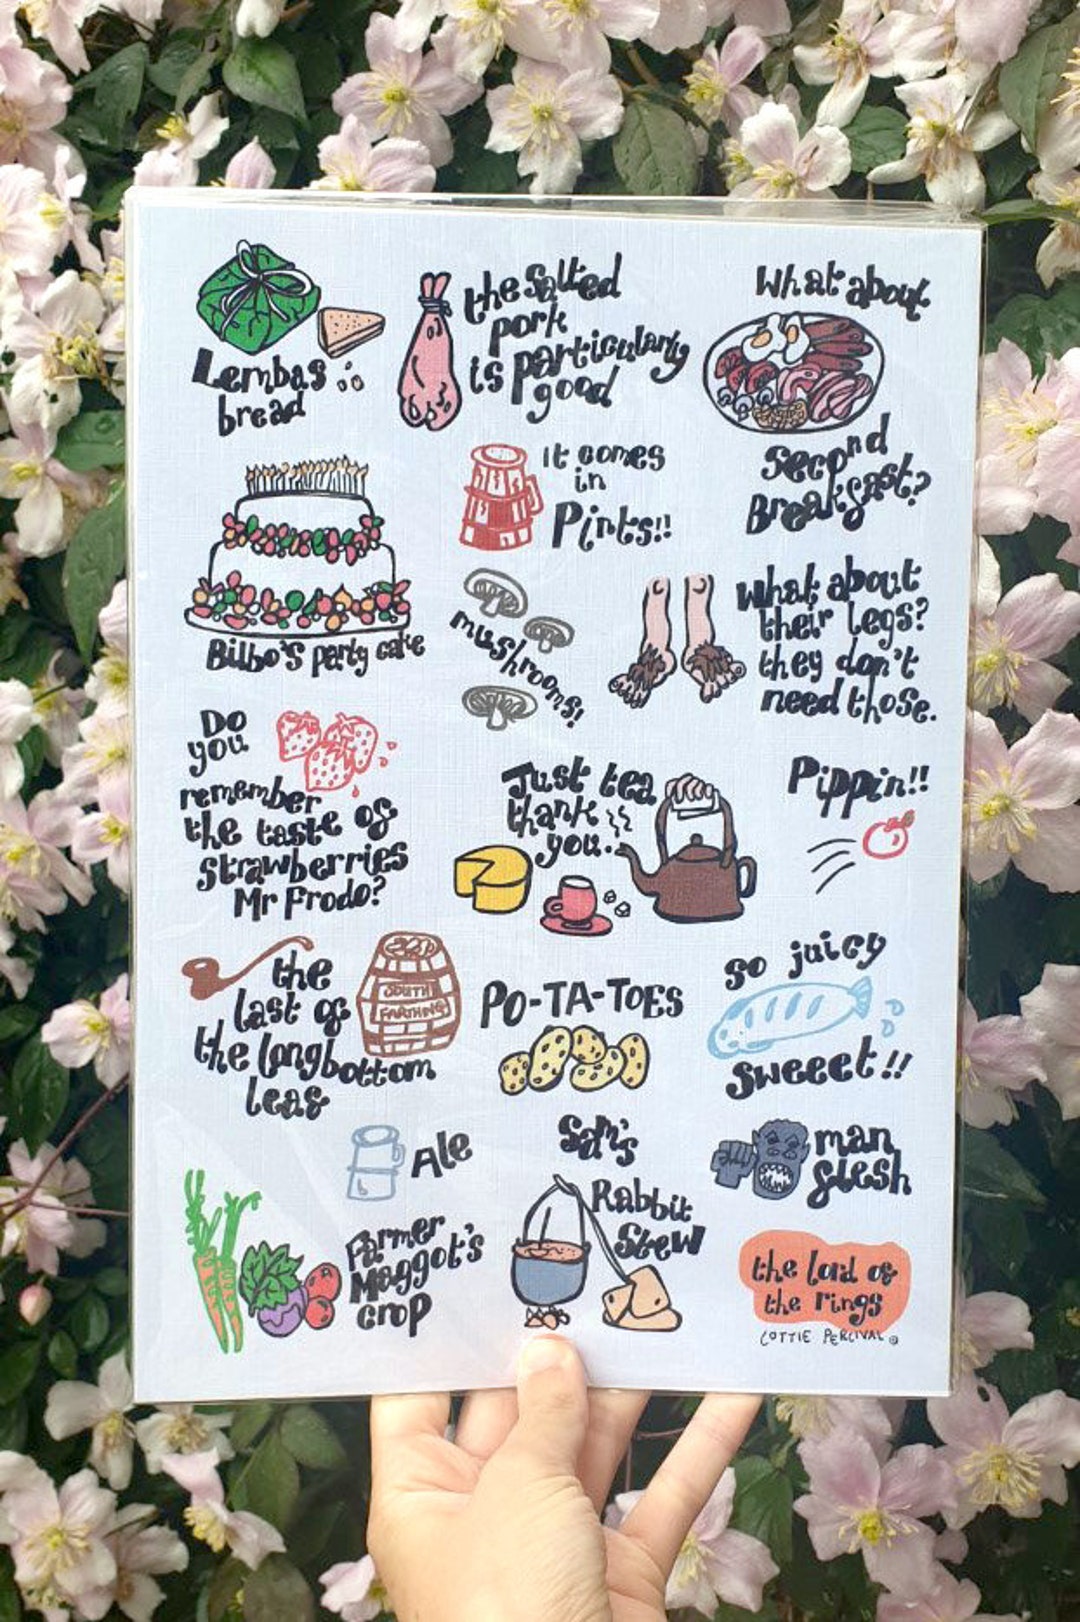 Lembas
bread
the Salted
pork
is particularly
good
What about
Second
Breakfast?
Bilbo's party cake
It comes
in
Pints!!
mushrooms!
What about
their legs?
they don't
need those.
Do
you
remember
the taste of
strawberries
Mr Frodo?
Just tea
thank
you.
Pippin!!
the
last of
the longbottom
leaf
SOUTH
FARTHING
PO-TA-TOES
so juicy
sweeet!!
Ale
Farmer
Maggot's
crop
Sam's
Rabbit
Stew
man
flesh
the lord of
the rings
LOTTIE PERCIVAL ©